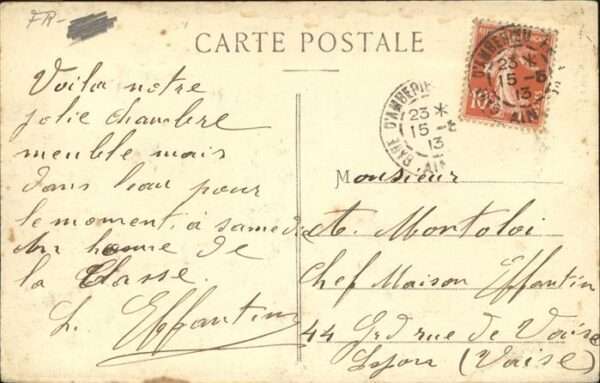 FR-
CARTE POSTALE
Voila notre
jolie chambre
meuble mais
sans l'eau pour
le moment, à samedi
homme de
la Classe.
L. Effantin
GARE D'AMBERIEU
23 *
15 -3
13
AIN
D'AMBERIEU
23 *
15 -3
13
AIN
10
Monsieur
A. Mortoloi
Chef Maison Effantin
44 Grd rue de Vaise
Lyon (Vaise)